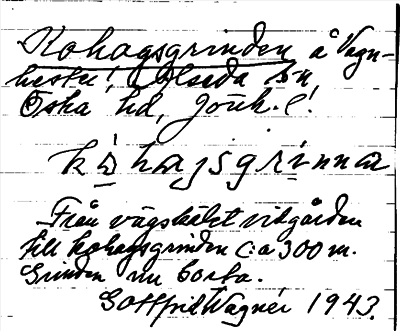 Kohagsgrinden å Vagn-
hester, Alseda sn
Östra hd, Jönk. l.
kohajsgrinna
Från vägskälet vitgården
till kohagsgrinden c:a 300 m.
Grinden nu borta.
Gottfrid Wagnér 1943.